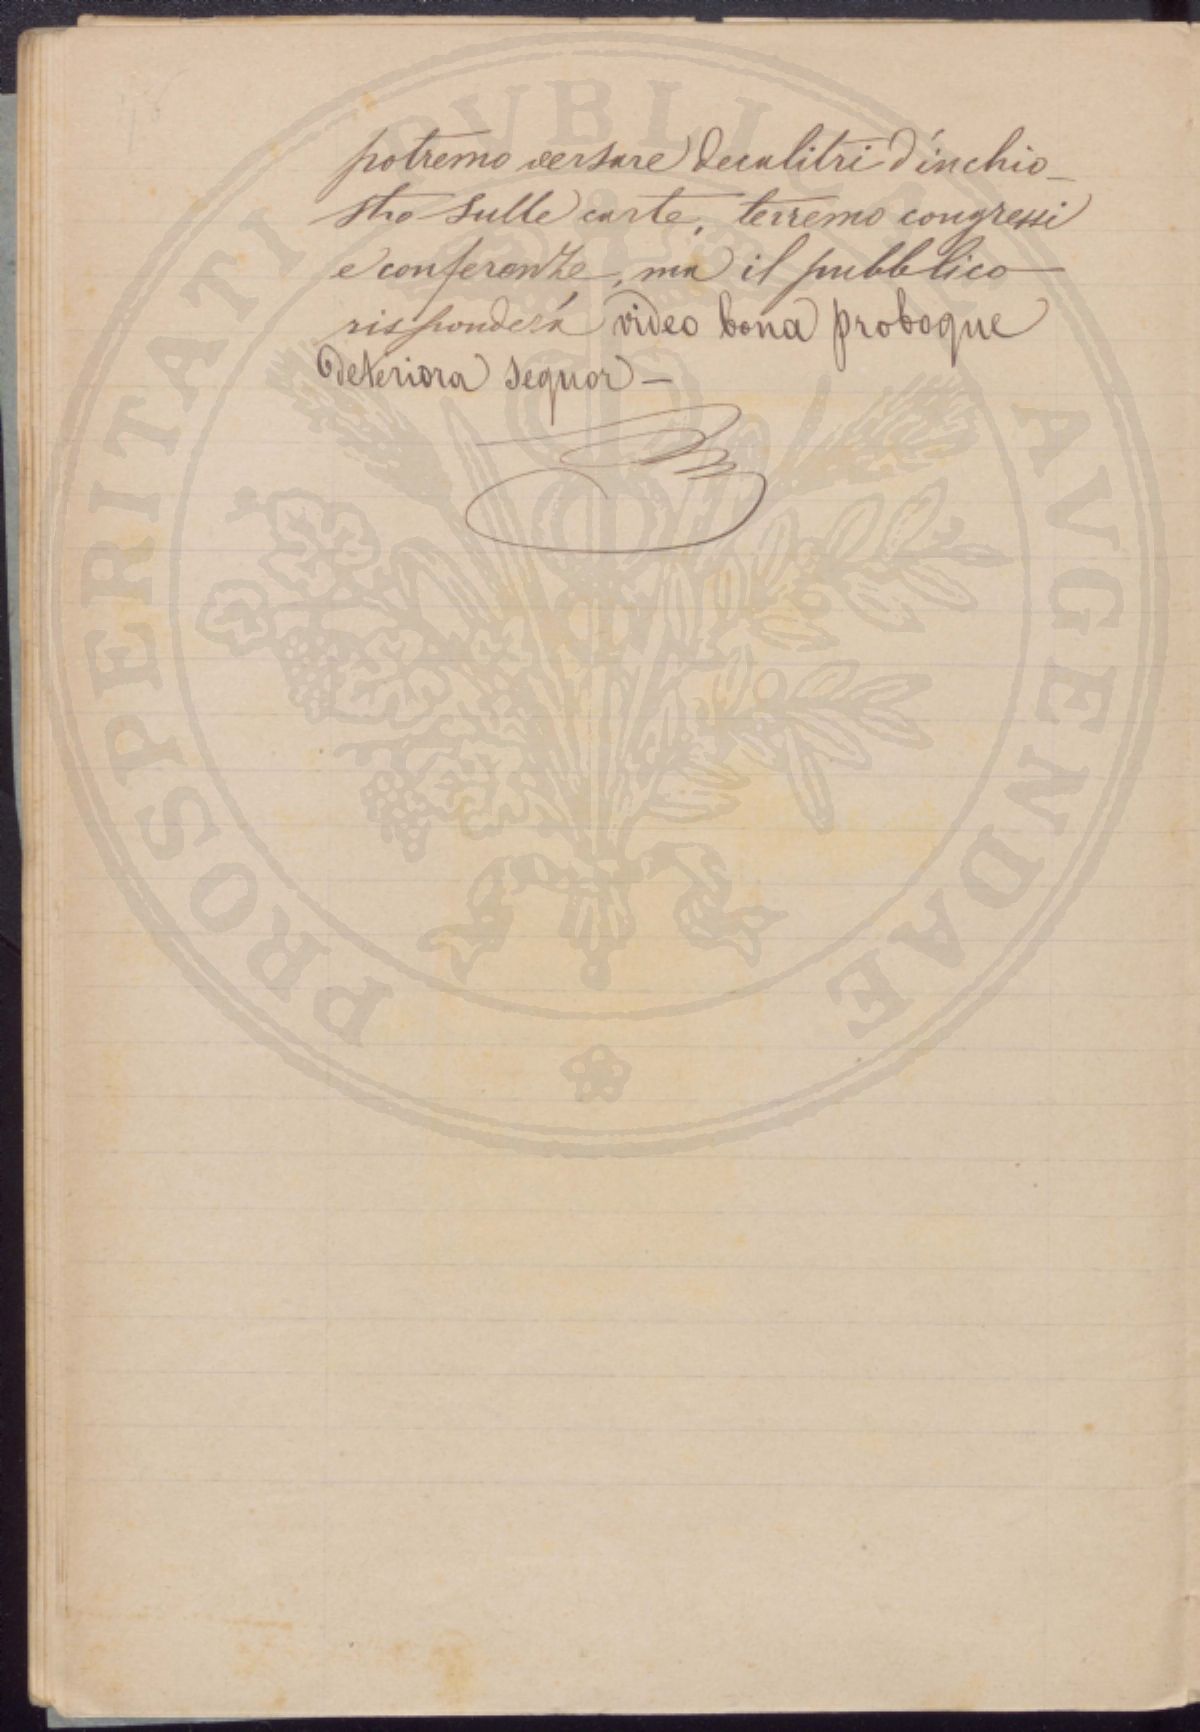 potremo versare decalitri d'inchio_
stro sulle carte, terremo congressi
e conferenze, ma il pubblico
risponderà video bona proboque
deteriora sequor —
PROSPERITATI PVBLICAE AVGENDAE